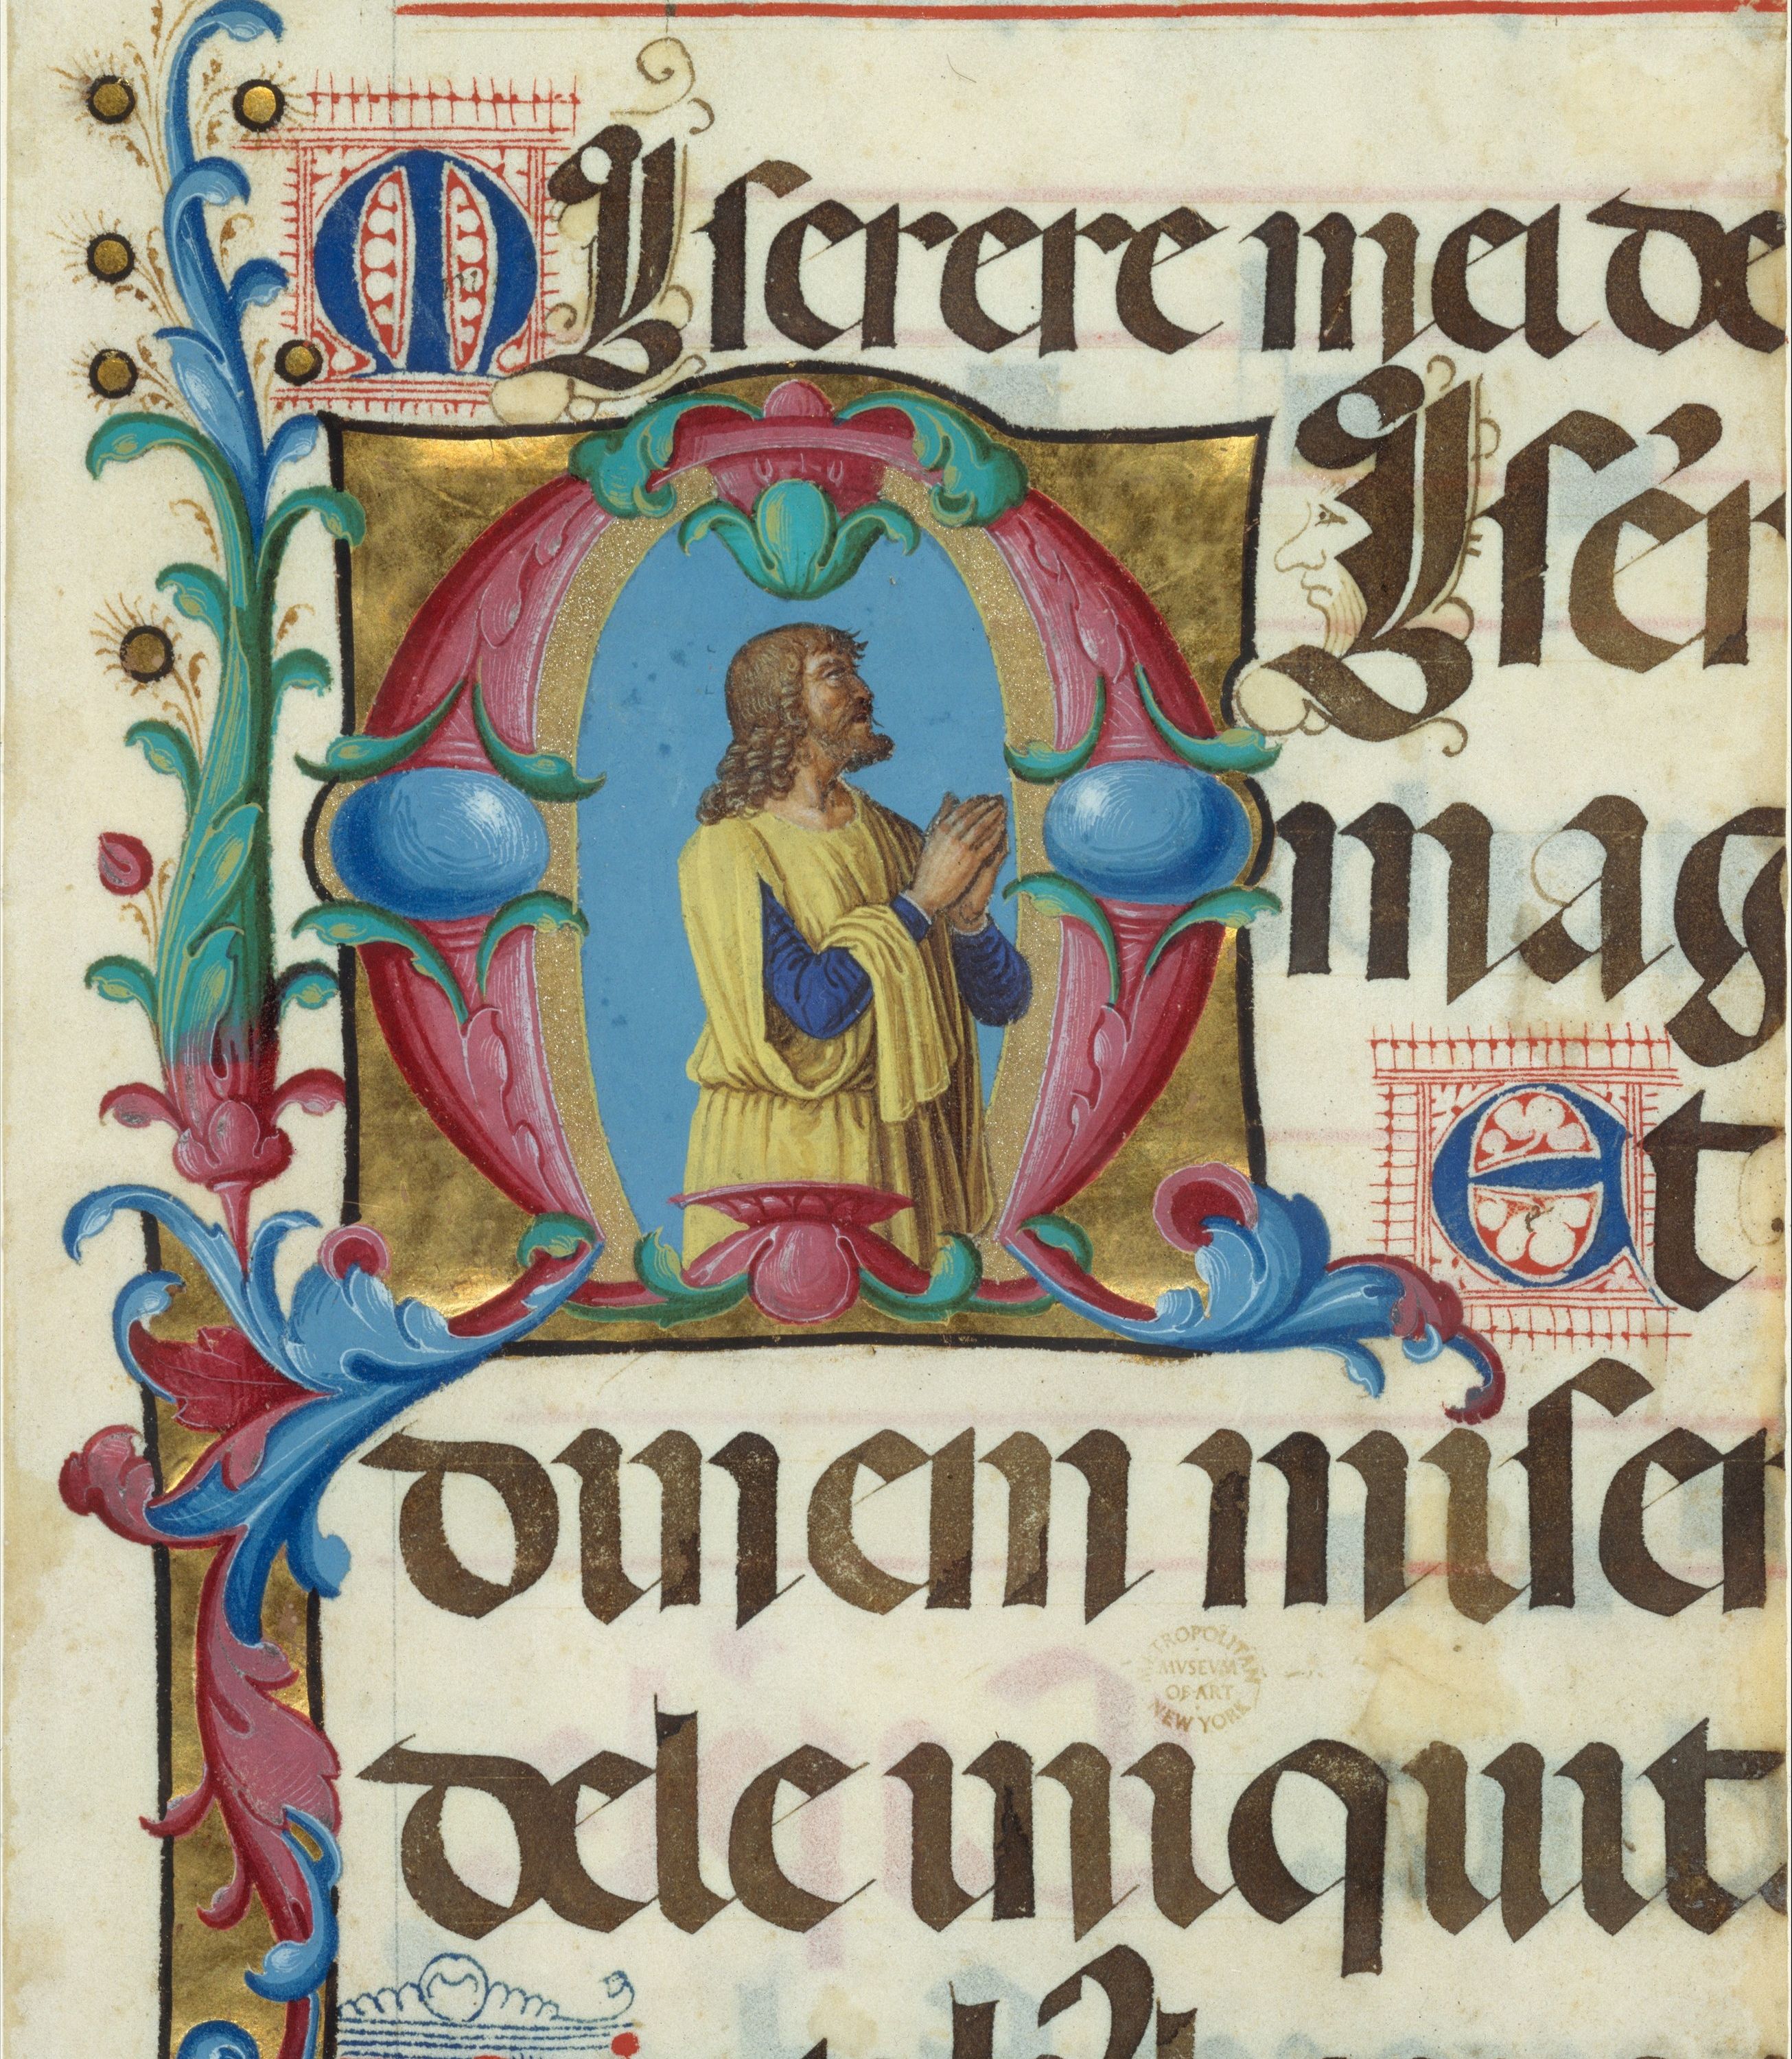 MIserere mei de
MIsér
mag
Et
dum em miser
dele iniquit
METROPOLITAN
MVSEVM
OF ART
NEW YORK